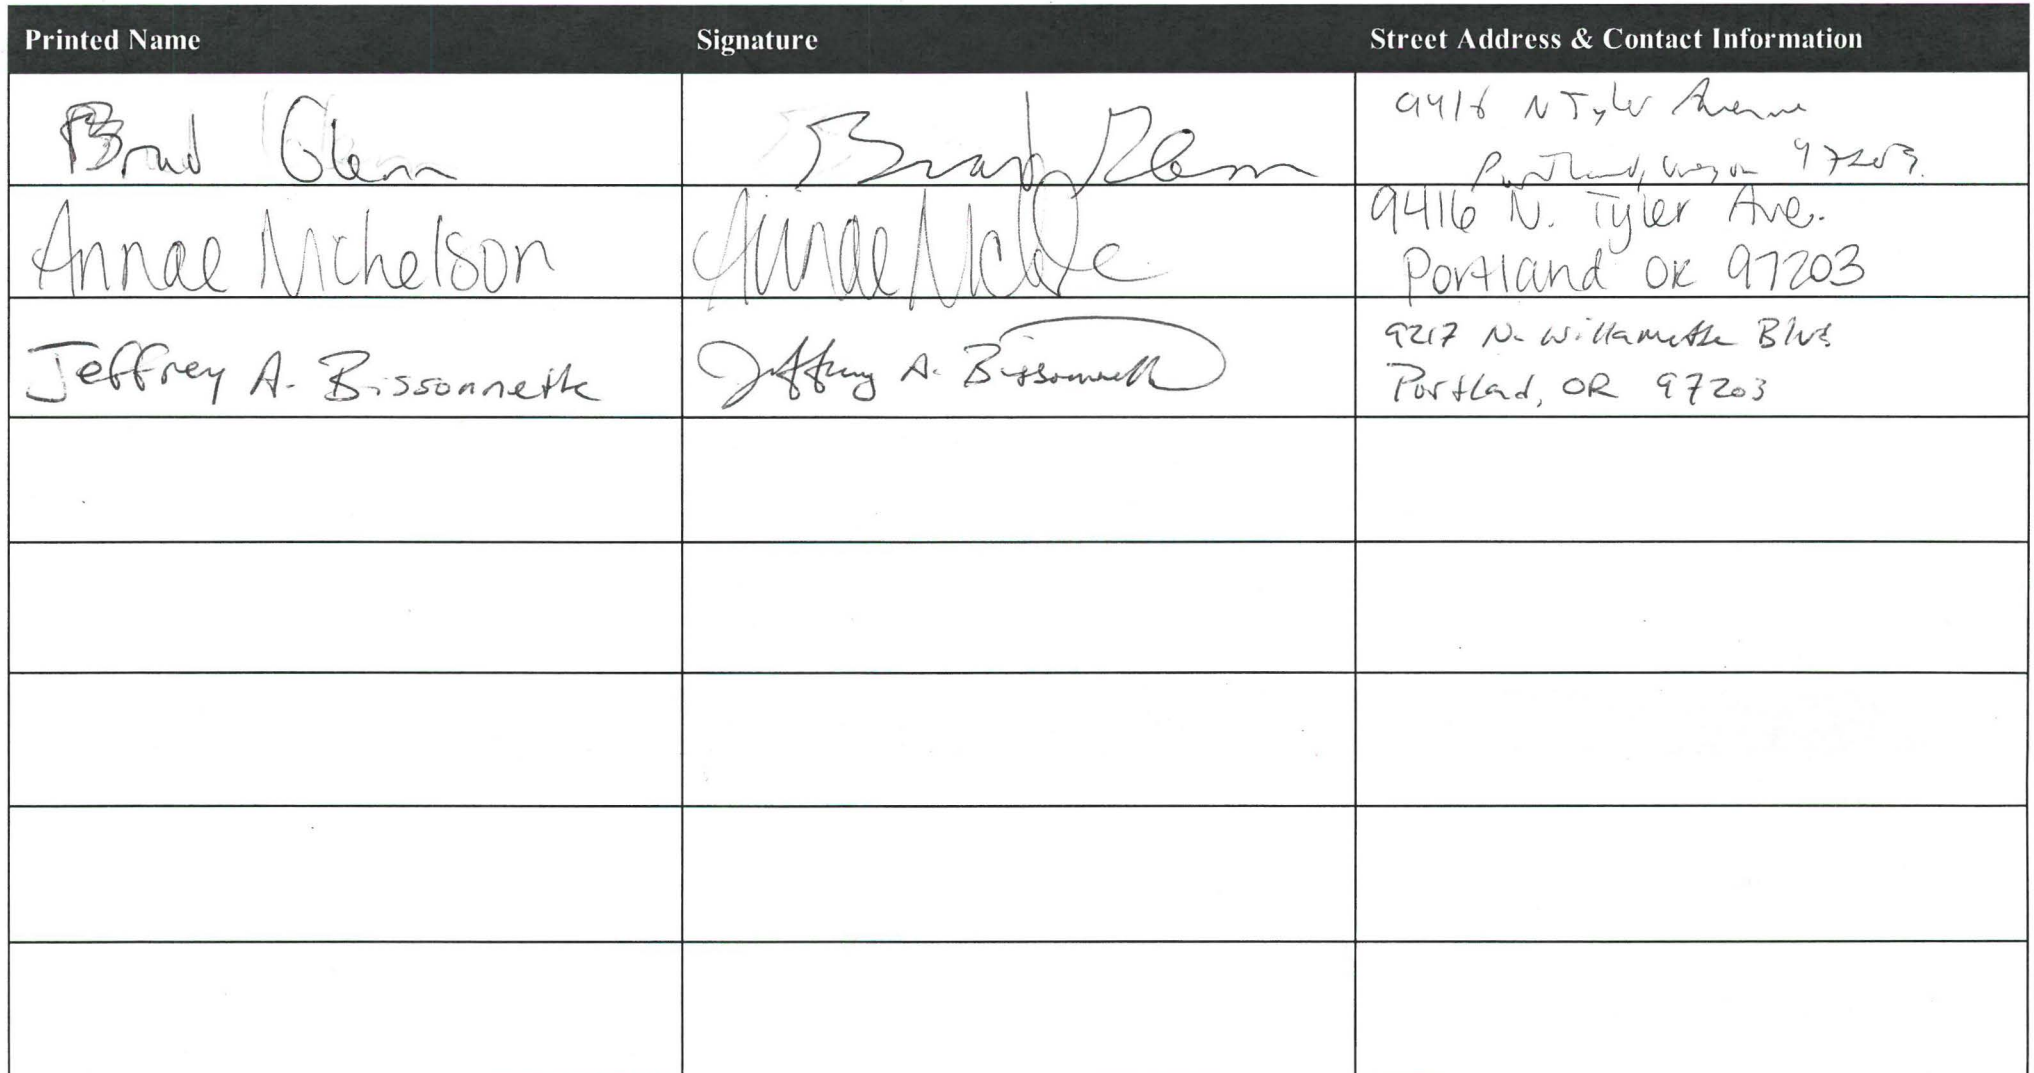 Printed Name Signature Street Address & Contact Information
Brad Glenn Brad Glenn 9416 N Tyler Avenue
Portland, Oregon 97203.
Annae Nichelson Annae 9416 N. Tyler Ave.
Portland OR 97203
Jeffrey A. Bissonnette Jeffrey A. Bissonnette 9217 N. Willamette Blvd
Portland, OR 97203